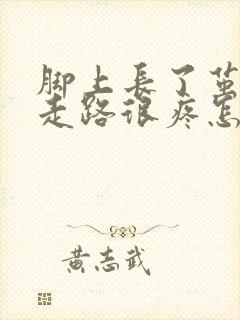 脚上長了茧
走路很疼怎
黄志武